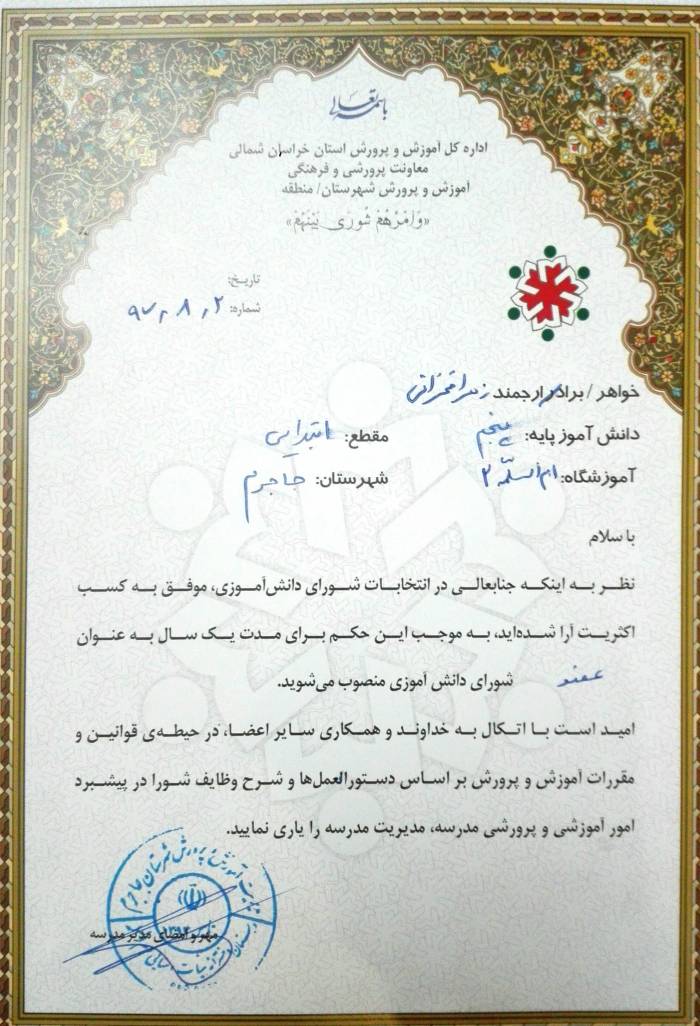 باسمه تعالی
اداره کل آموزش و پرورش استان خراسان شمالی
معاونت پرورشی و فرهنگی
آموزش و پرورش شهرستان/ منطقه
«وَاَمْرُهُمْ شُورَی بَیْنَهُمْ»
تاریخ:
شماره: ۹۷،۸،۲
خواهر / برادر ارجمند زهرا
دانش آموز پایه: پنجم مقطع: ابتدایی
آموزشگاه: ام السلمه ۲ شهرستان: جاجرم
با سلام
نظر به اینکه جنابعالی در انتخابات شورای دانش‌آموزی، موفق به کسب
اکثریت آرا شده‌اید، به موجب این حکم برای مدت یک سال به عنوان
عضو شورای دانش آموزی منصوب می‌شوید.
امید است با اتکال به خداوند و همکاری سایر اعضا، در حیطه‌ی قوانین و
مقررات آموزش و پرورش بر اساس دستورالعمل‌ها و شرح وظایف شورا در پیشبرد
امور آموزشی و پرورشی مدرسه، مدیریت مدرسه را یاری نمایید.
آموزش و پرورش شهرستان جاجرم
مهر و امضای مدیر مدرسه